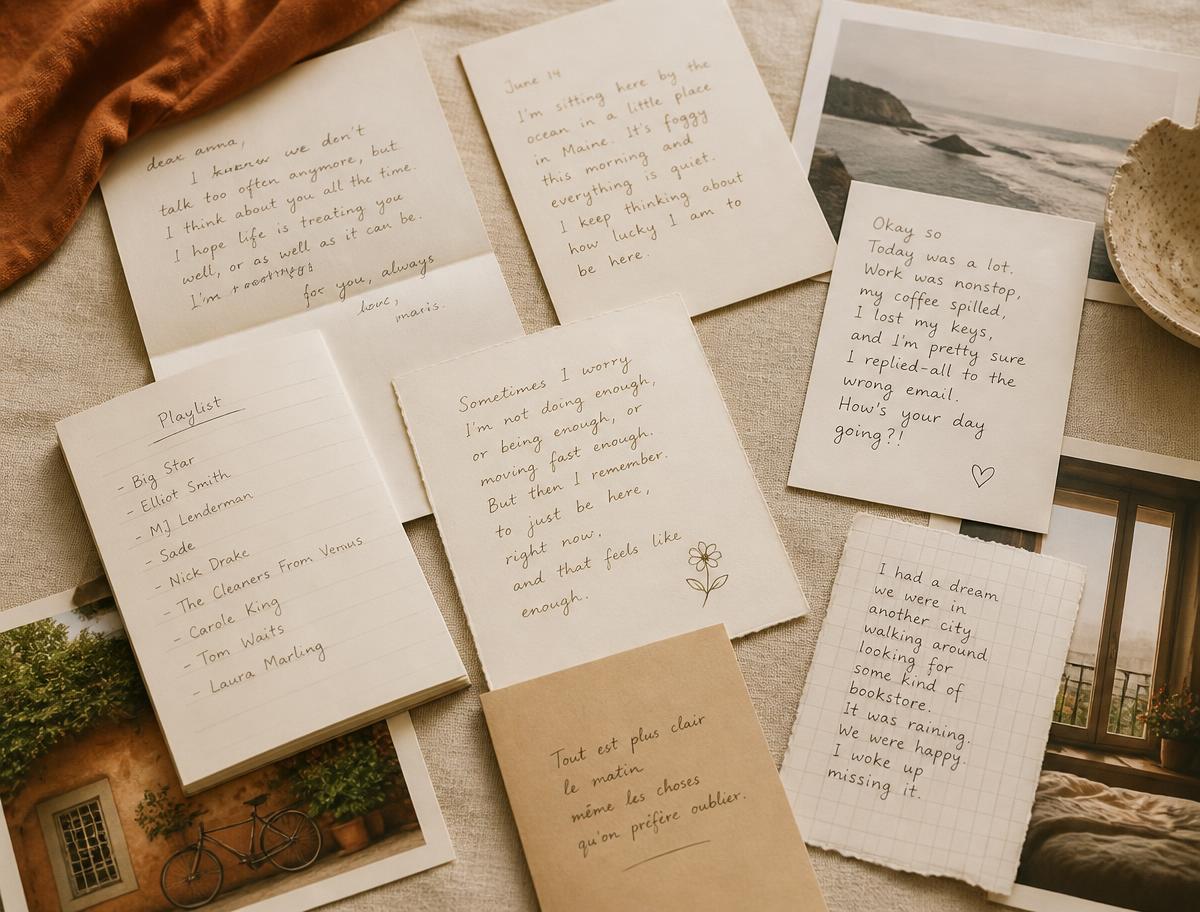 dear anna,
I we don't
talk too often anymore, but
I think about you all the time.
I hope life is treating you
well, or as well as it can be.
I'm
for you, always
love,
maris.
June 14
I'm sitting here by the
ocean in a little place
in Maine. It's foggy
this morning and
everything is quiet.
I keep thinking about
how lucky I am to
be here.
Okay so
Today was a lot.
Work was nonstop,
my coffee spilled,
I lost my keys,
and I'm pretty sure
I replied-all to the
wrong email.
How's your day
going?!
Playlist
- Big Star
- Elliot Smith
- MJ Lenderman
- Sade
- Nick Drake
- The Cleaners From Venus
- Carole King
- Tom Waits
- Laura Marling
Sometimes I worry
I'm not doing enough,
or being enough, or
moving fast enough.
But then I remember.
to just be here,
right now.
and that feels like
enough.
Tout est plus clair
le matin
même les choses
qu'on préfère oublier.
I had a dream
we were in
another city
walking around
looking for
some kind of
bookstore.
It was raining.
We were happy.
I woke up
missing it.